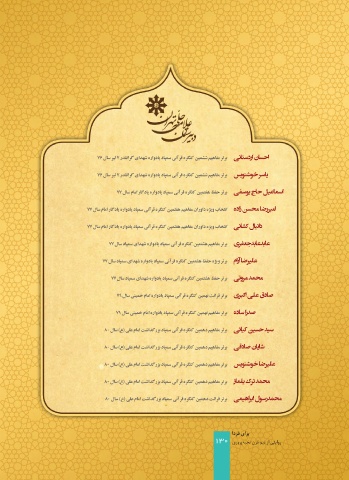 دبیرستان علامه حلی تهران
احسان اردستانی برتر مفاهیم ششمین کنگره قرآنی سمپاد یادواره شهدای گرانقدر ۷ تیر سال ۷۶
یاسر خوشنویس برتر مفاهیم ششمین کنگره قرآنی سمپاد یادواره شهدای گرانقدر ۷ تیر سال ۷۶
اسماعیل حاج یوسفی برتر حفظ هفتمین کنگره قرآنی سمپاد یادواره یادگار امام سال ۷۷
امیررضا محسن زاده انتخاب ویژه داوران مفاهیم هفتمین کنگره قرآنی سمپاد یادواره یادگار امام سال ۷۷
دانیال کشانی انتخاب ویژه داوران مفاهیم هفتمین کنگره قرآنی سمپاد یادواره یادگار امام سال ۷۷
عابد عابدجعفری برتر مفاهیم هشتمین کنگره قرآنی سمپاد یادواره شهدای سمپاد سال ۷۷
علیرضا آرام برتر ویژه حفظ هشتمین کنگره قرآنی سمپاد یادواره شهدای سمپاد سال ۷۷
محمد مروتی برتر حفظ هشتمین کنگره قرآنی سمپاد یادواره شهدای سمپاد سال ۷۷
صادق علی اکبری برتر قرائت نهمین کنگره قرآنی سمپاد یادواره امام خمینی سال ۷۹
صدرا ساده برتر مفاهیم نهمین کنگره قرآنی سمپاد یادواره امام خمینی سال ۷۹
سید حسین کیائی برتر مفاهیم دهمین کنگره قرآنی سمپاد بزرگداشت امام علی (ع) سال ۸۰
شایان صادقی برتر مفاهیم دهمین کنگره قرآنی سمپاد بزرگداشت امام علی (ع) سال ۸۰
علیرضا خوشنویس برتر مفاهیم دهمین کنگره قرآنی سمپاد بزرگداشت امام علی (ع) سال ۸۰
محمد ترک یلماز برتر مفاهیم دهمین کنگره قرآنی سمپاد بزرگداشت امام علی (ع) سال ۸۰
محمدرسول ابراهیمی برتر قرائت دهمین کنگره قرآنی سمپاد بزرگداشت امام علی (ع) سال ۸۰
برای فردا
۱۳۰